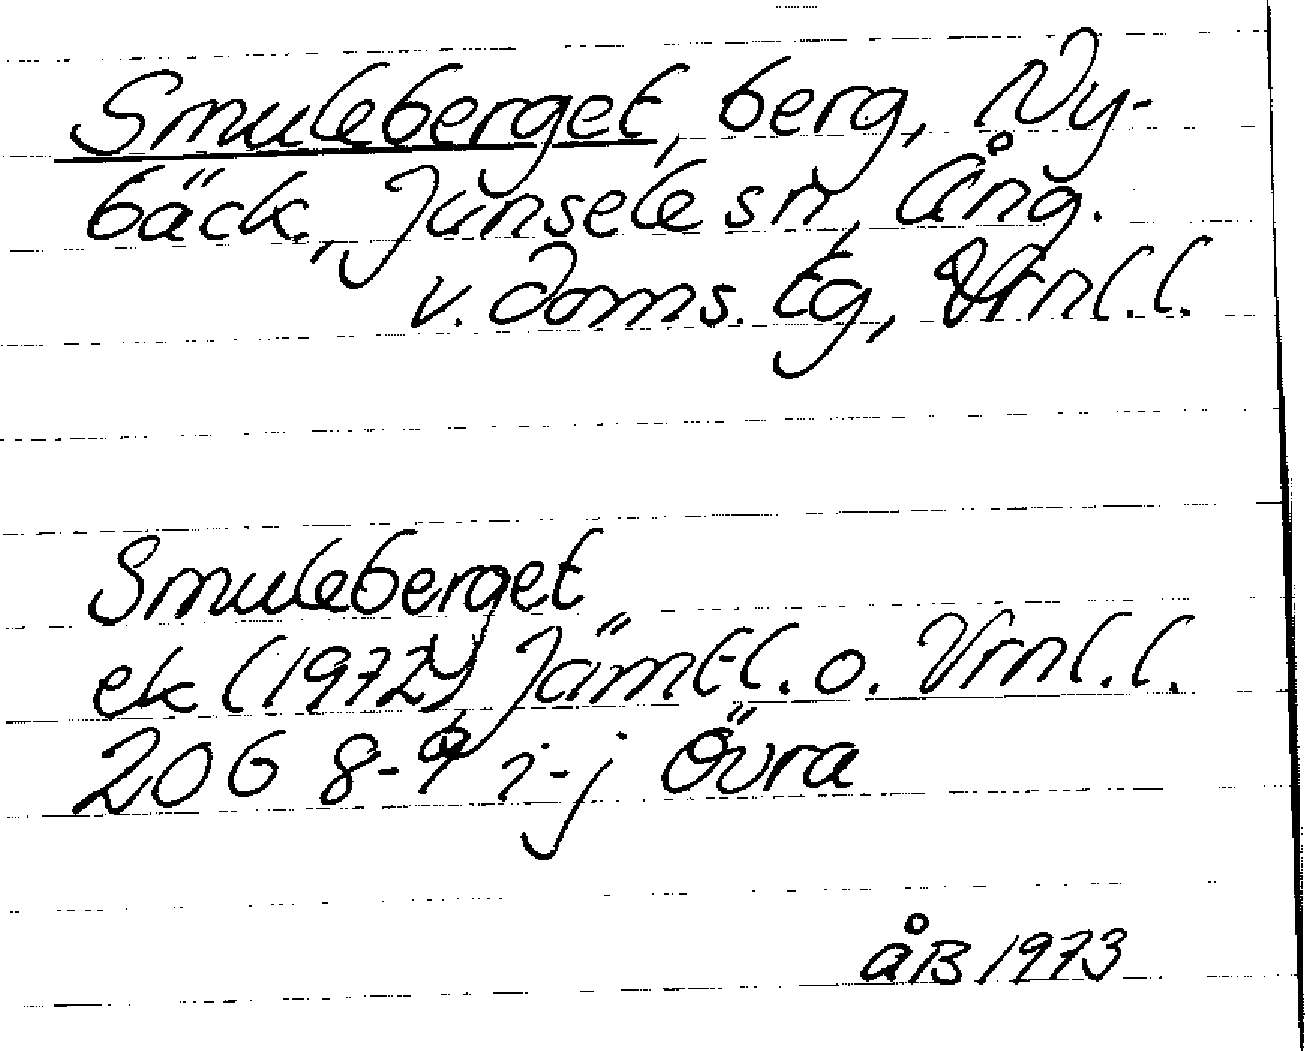 Smuleberget, berg, Ny-
bäck, Junsele sn, Ång.
v. doms. tg, Vrnl.l.
Smuleberget
ek (1972) Jämtl. o. Vrnl.l.
20G 8-9 i-j Övra
åB 1973